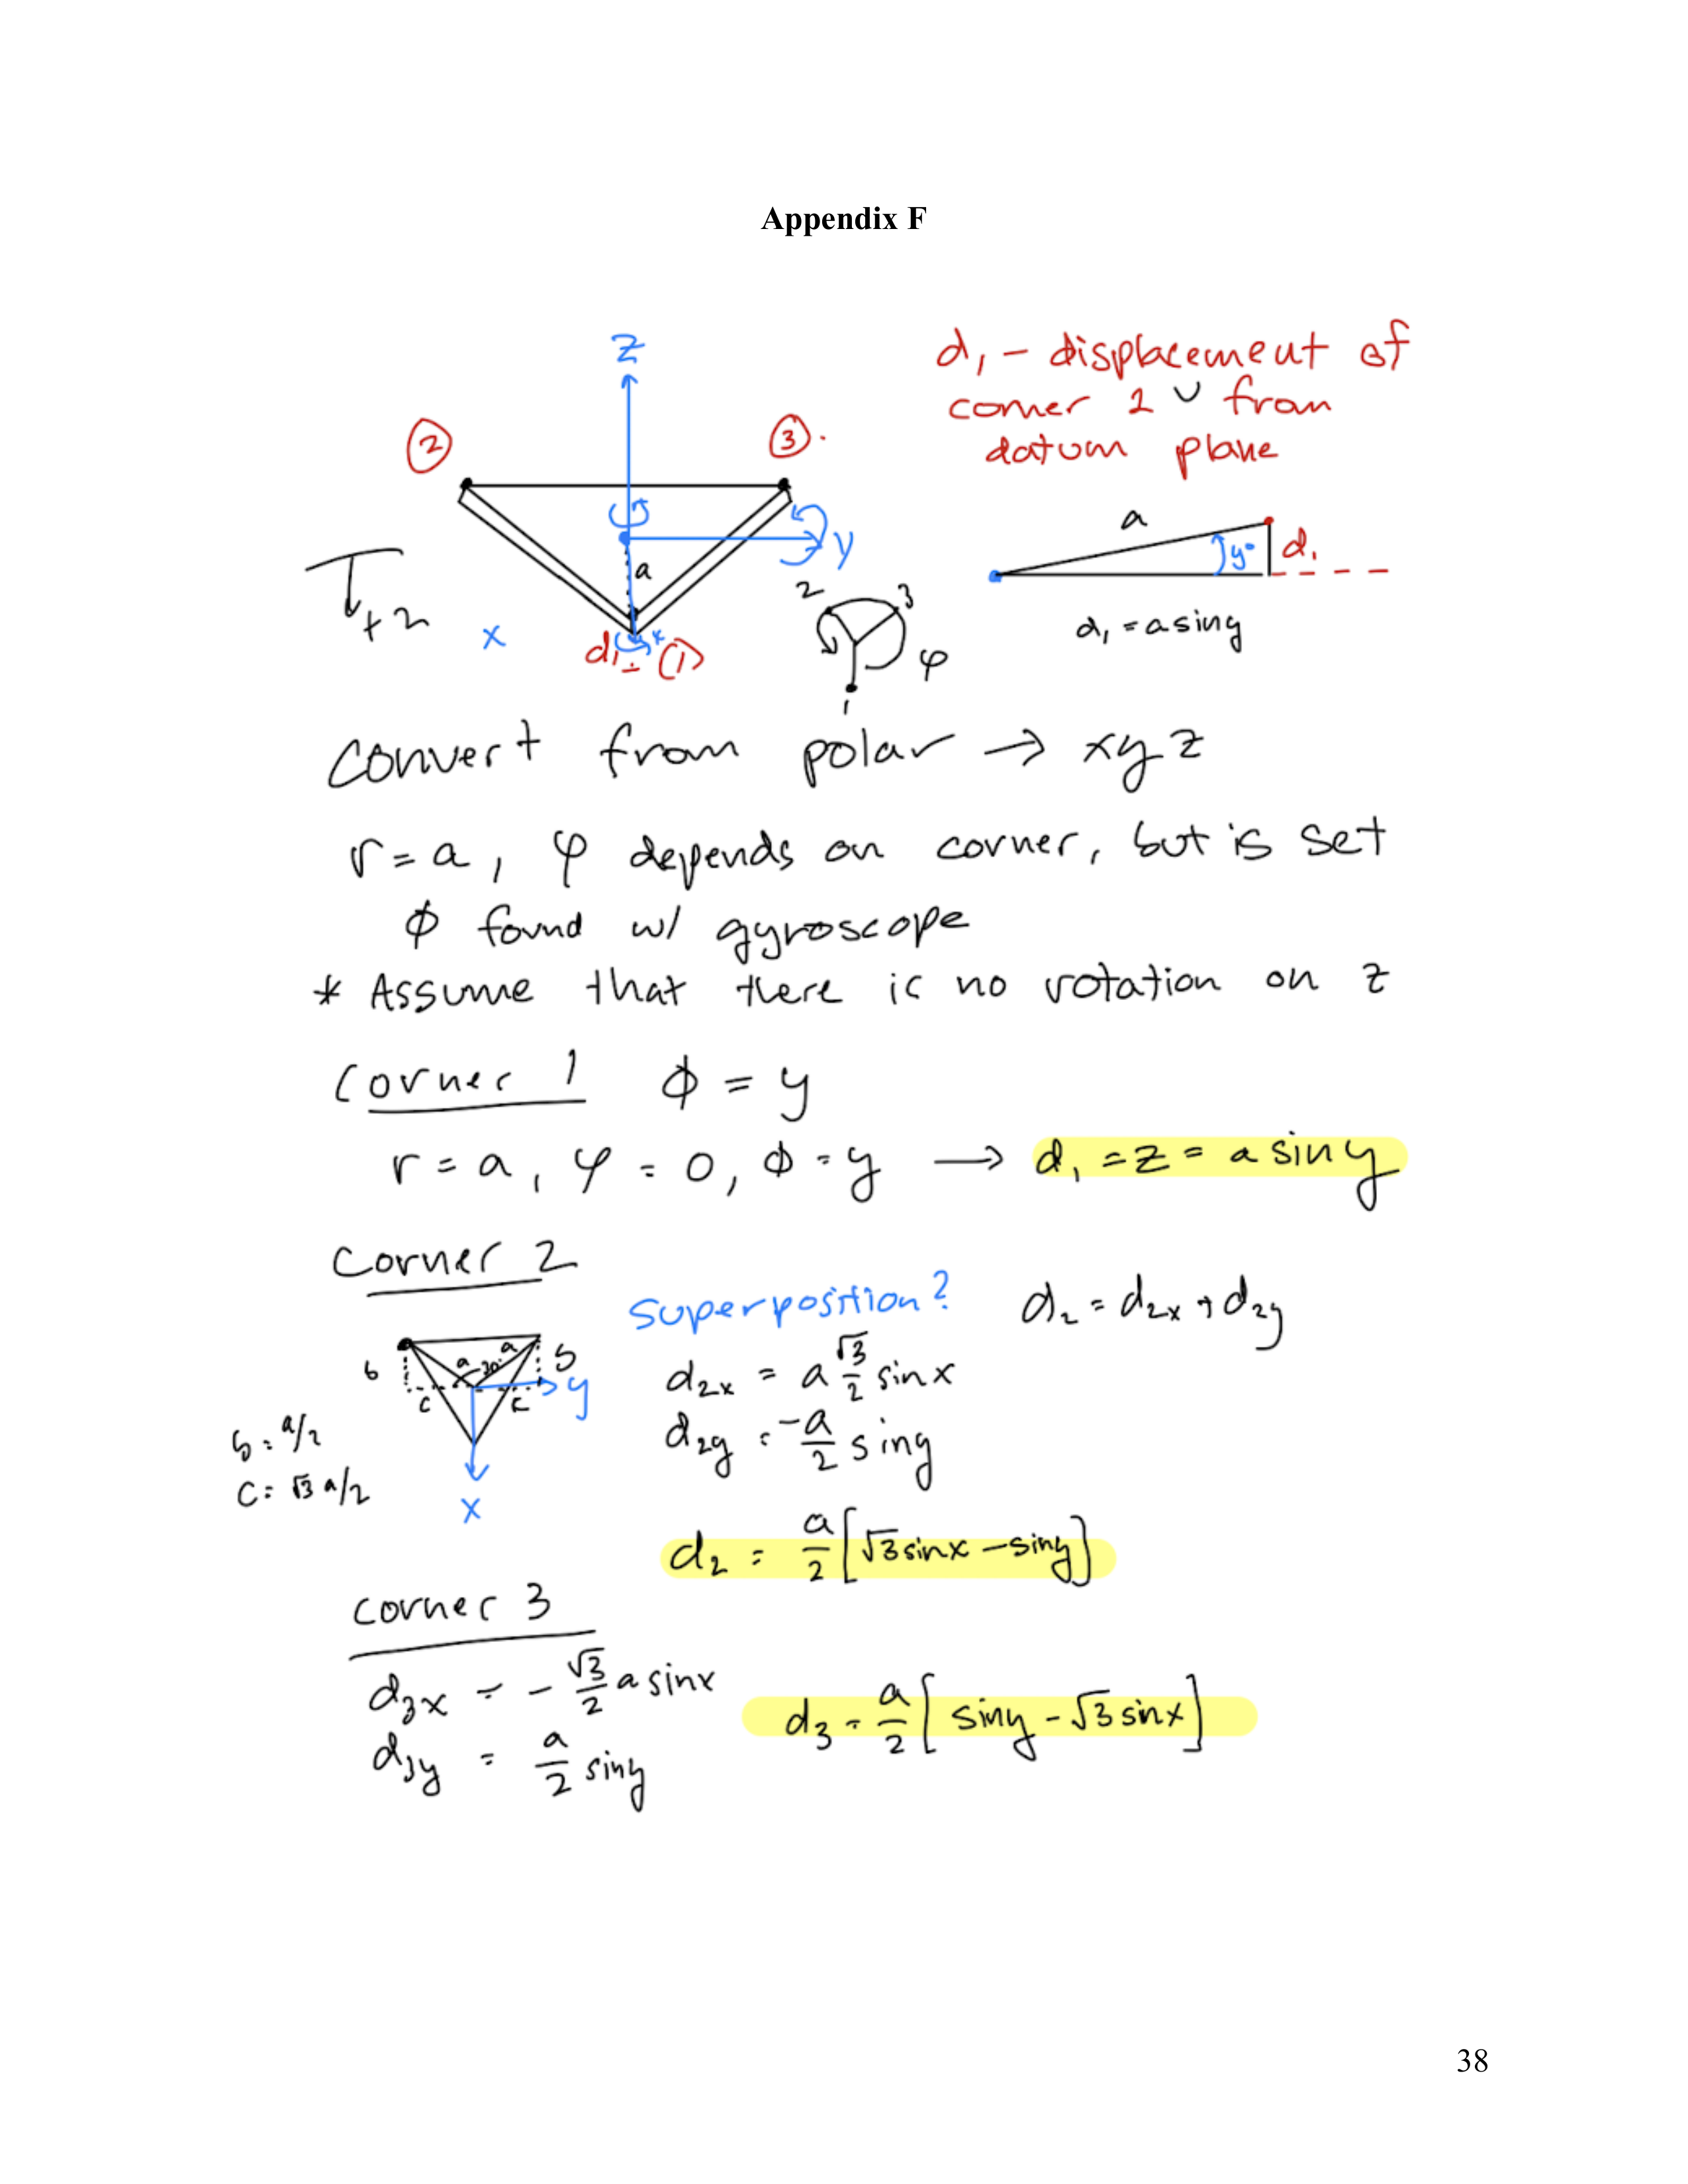 Appendix F
z
d₁ - displacement of
corner 1 from
datum plane
② ③
y
a
x
d₁ (1)
2 3
φ
1
a
y°
d₁
d₁ = a sin y
convert from polar → xyz
r = a, φ depends on corner, but is set
ϕ found w/ gyroscope
* Assume that there is no rotation on z
Corner 1 ϕ = y
r = a, φ = 0, ϕ = y → d₁ = z = a sin y
Corner 2
Superposition? d₂ = d₂ₓ + d₂y
b a a b
c c y
x
b = a/2
c = √3 a/2
d₂ₓ = a √3/2 sin x
d₂y = -a/2 sin y
d₂ = a/2 [√3 sin x - sin y]
corner 3
d₃ₓ = - √3/2 a sin x
d₃y = a/2 sin y
d₃ = a/2 [sin y - √3 sin x]
38